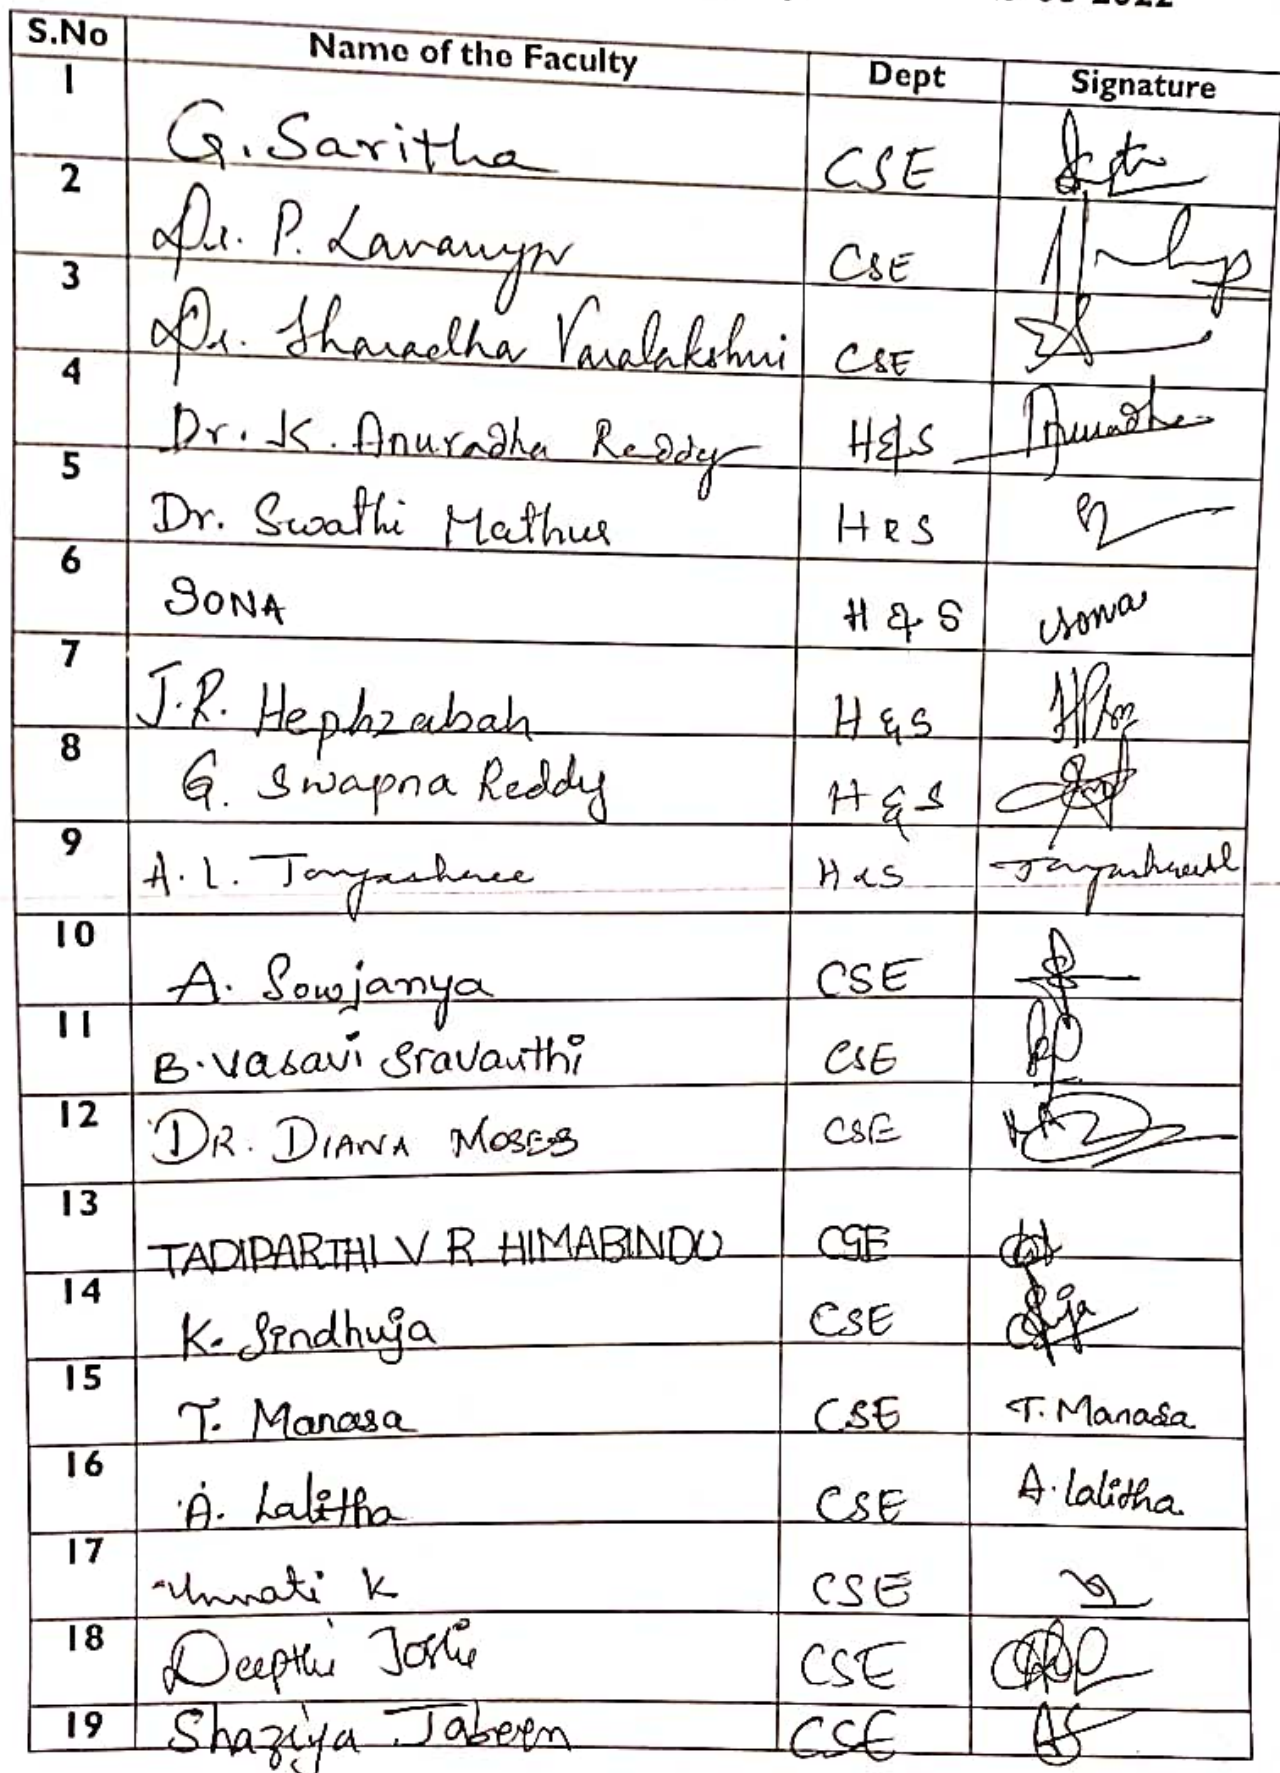 2022
S.No Name of the Faculty Dept Signature
1 G. Saritha CSE
2 Dr. P. Lavanya CSE
3 Dr. Sharadha Varalakshmi CSE
4 Dr. K. Anuradha Reddy H&S Anuradha
5 Dr. Swathi Mathur H&S
6 SONA H & S sona
7 J.R. Hephzabah H & S
8 G. Swapna Reddy H & S
9 A. L. Jayashree H&S Jayashree
10 A. Sowjanya CSE
11 B. Vasavi Sravanthi CSE
12 DR. DIANA MOSES CSE
13 TADIPARTHI V R HIMABINDU CSE
14 K. Sindhuja CSE
15 T. Manasa CSE T. Manasa
16 A. Lalitha CSE A. Lalitha
17 Unnati K CSE
18 Deepthi Joshi CSE
19 Shaziya Jabeen CSE